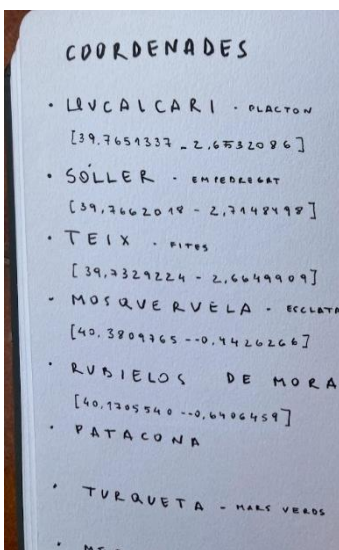 COORDENADES
· LLUCALCARI · PLACTON
[39,7651337 - 2,6532086]
· SÓLLER - EMPEDREGAT
[39,7662018 - 2,7148498]
· TEIX · FITES
[39,7329224 - 2,6649909]
· MOSQUERUELA - ESCLATA
[40,3809765 --0,4426266]
· RUBIELOS DE MORA
[40,1705540 --0,6406459]
· PATACONA
· TURQUETA - MARS VERDS